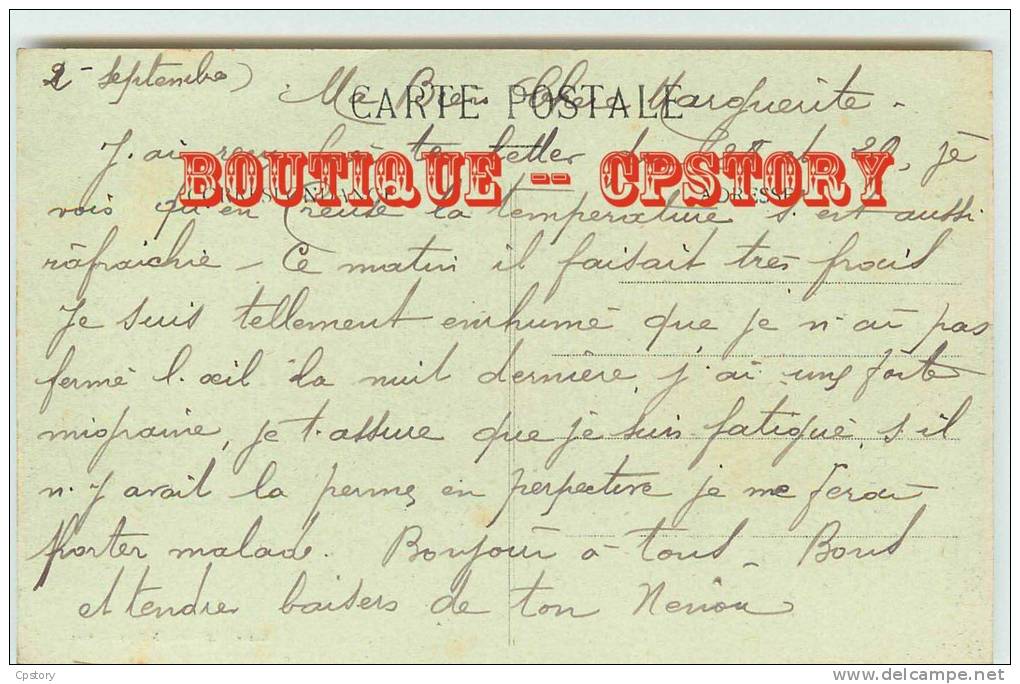 2 - Septembre
Ma Bien Chère Marguerite -
CARTE POSTALE
J. ai reçu ta letter du 28 et 29, je
BOUTIQUE -- CPSTORY
ADRESSE
vois qu'en Creuse la température s. est aussi
râfraichie - Ce matin il faisait très froid
Je suis tellement enrhumé que je n. ai pas
fermé l. œil la nuit dernière, j. ai une forte
migraine, je t. assure que je suis fatigué, s'il
n. y avait la perme en perpective je me ferai
porter malade. Bonjour à tous - Bons
et tendres baisers de ton
Cpstory
www.delcampe.net